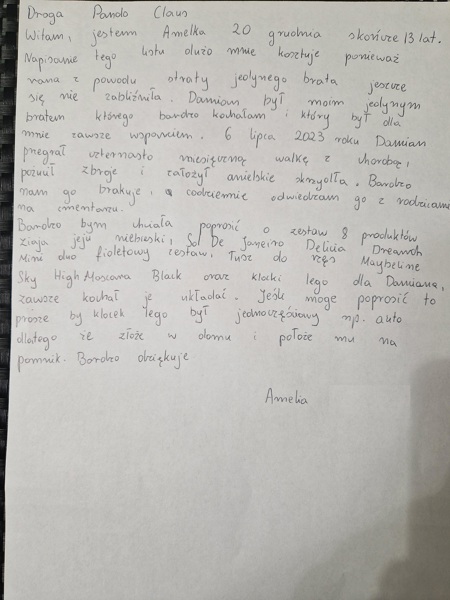 Droga Pando Claus
Witam, jestem Amelka 20 grudnia skończe 13 lat.
Napisanie tego listu dużo mnie kosztuje ponieważ
rana z powodu straty jedynego brata jeszcze
się nie zabliźniła. Damian był moim jedynym
bratem którego bardzo kochałam i który był dla
mnie zawsze wsparciem. 6 lipca 2023 roku Damian
przegrał czternasto miesięczną walkę z chorobą,
rzucił zbroje i założył anielskie skrzydła. Bardzo
nam go brakuje, codziennie odwiedzam go z rodzicami
na cmentarzu.
Bardzo bym chciała poprosić o zestaw 8 produktów
Ziaja jeju niebieski, Sol De Janeiro Delicia Drench
Mini duo fioletowy zestaw, Tusz do rzęs Maybeline
Sky High Mascara Black oraz klocki lego dla Damiana,
zawsze kochał je układać. Jeśli moge poprosić to
prosze by klocek lego był jednoczęściowy np. auto
dlatego że złoże w domu i położe mu na
pomnik. Bardzo dziękuje
Amelia